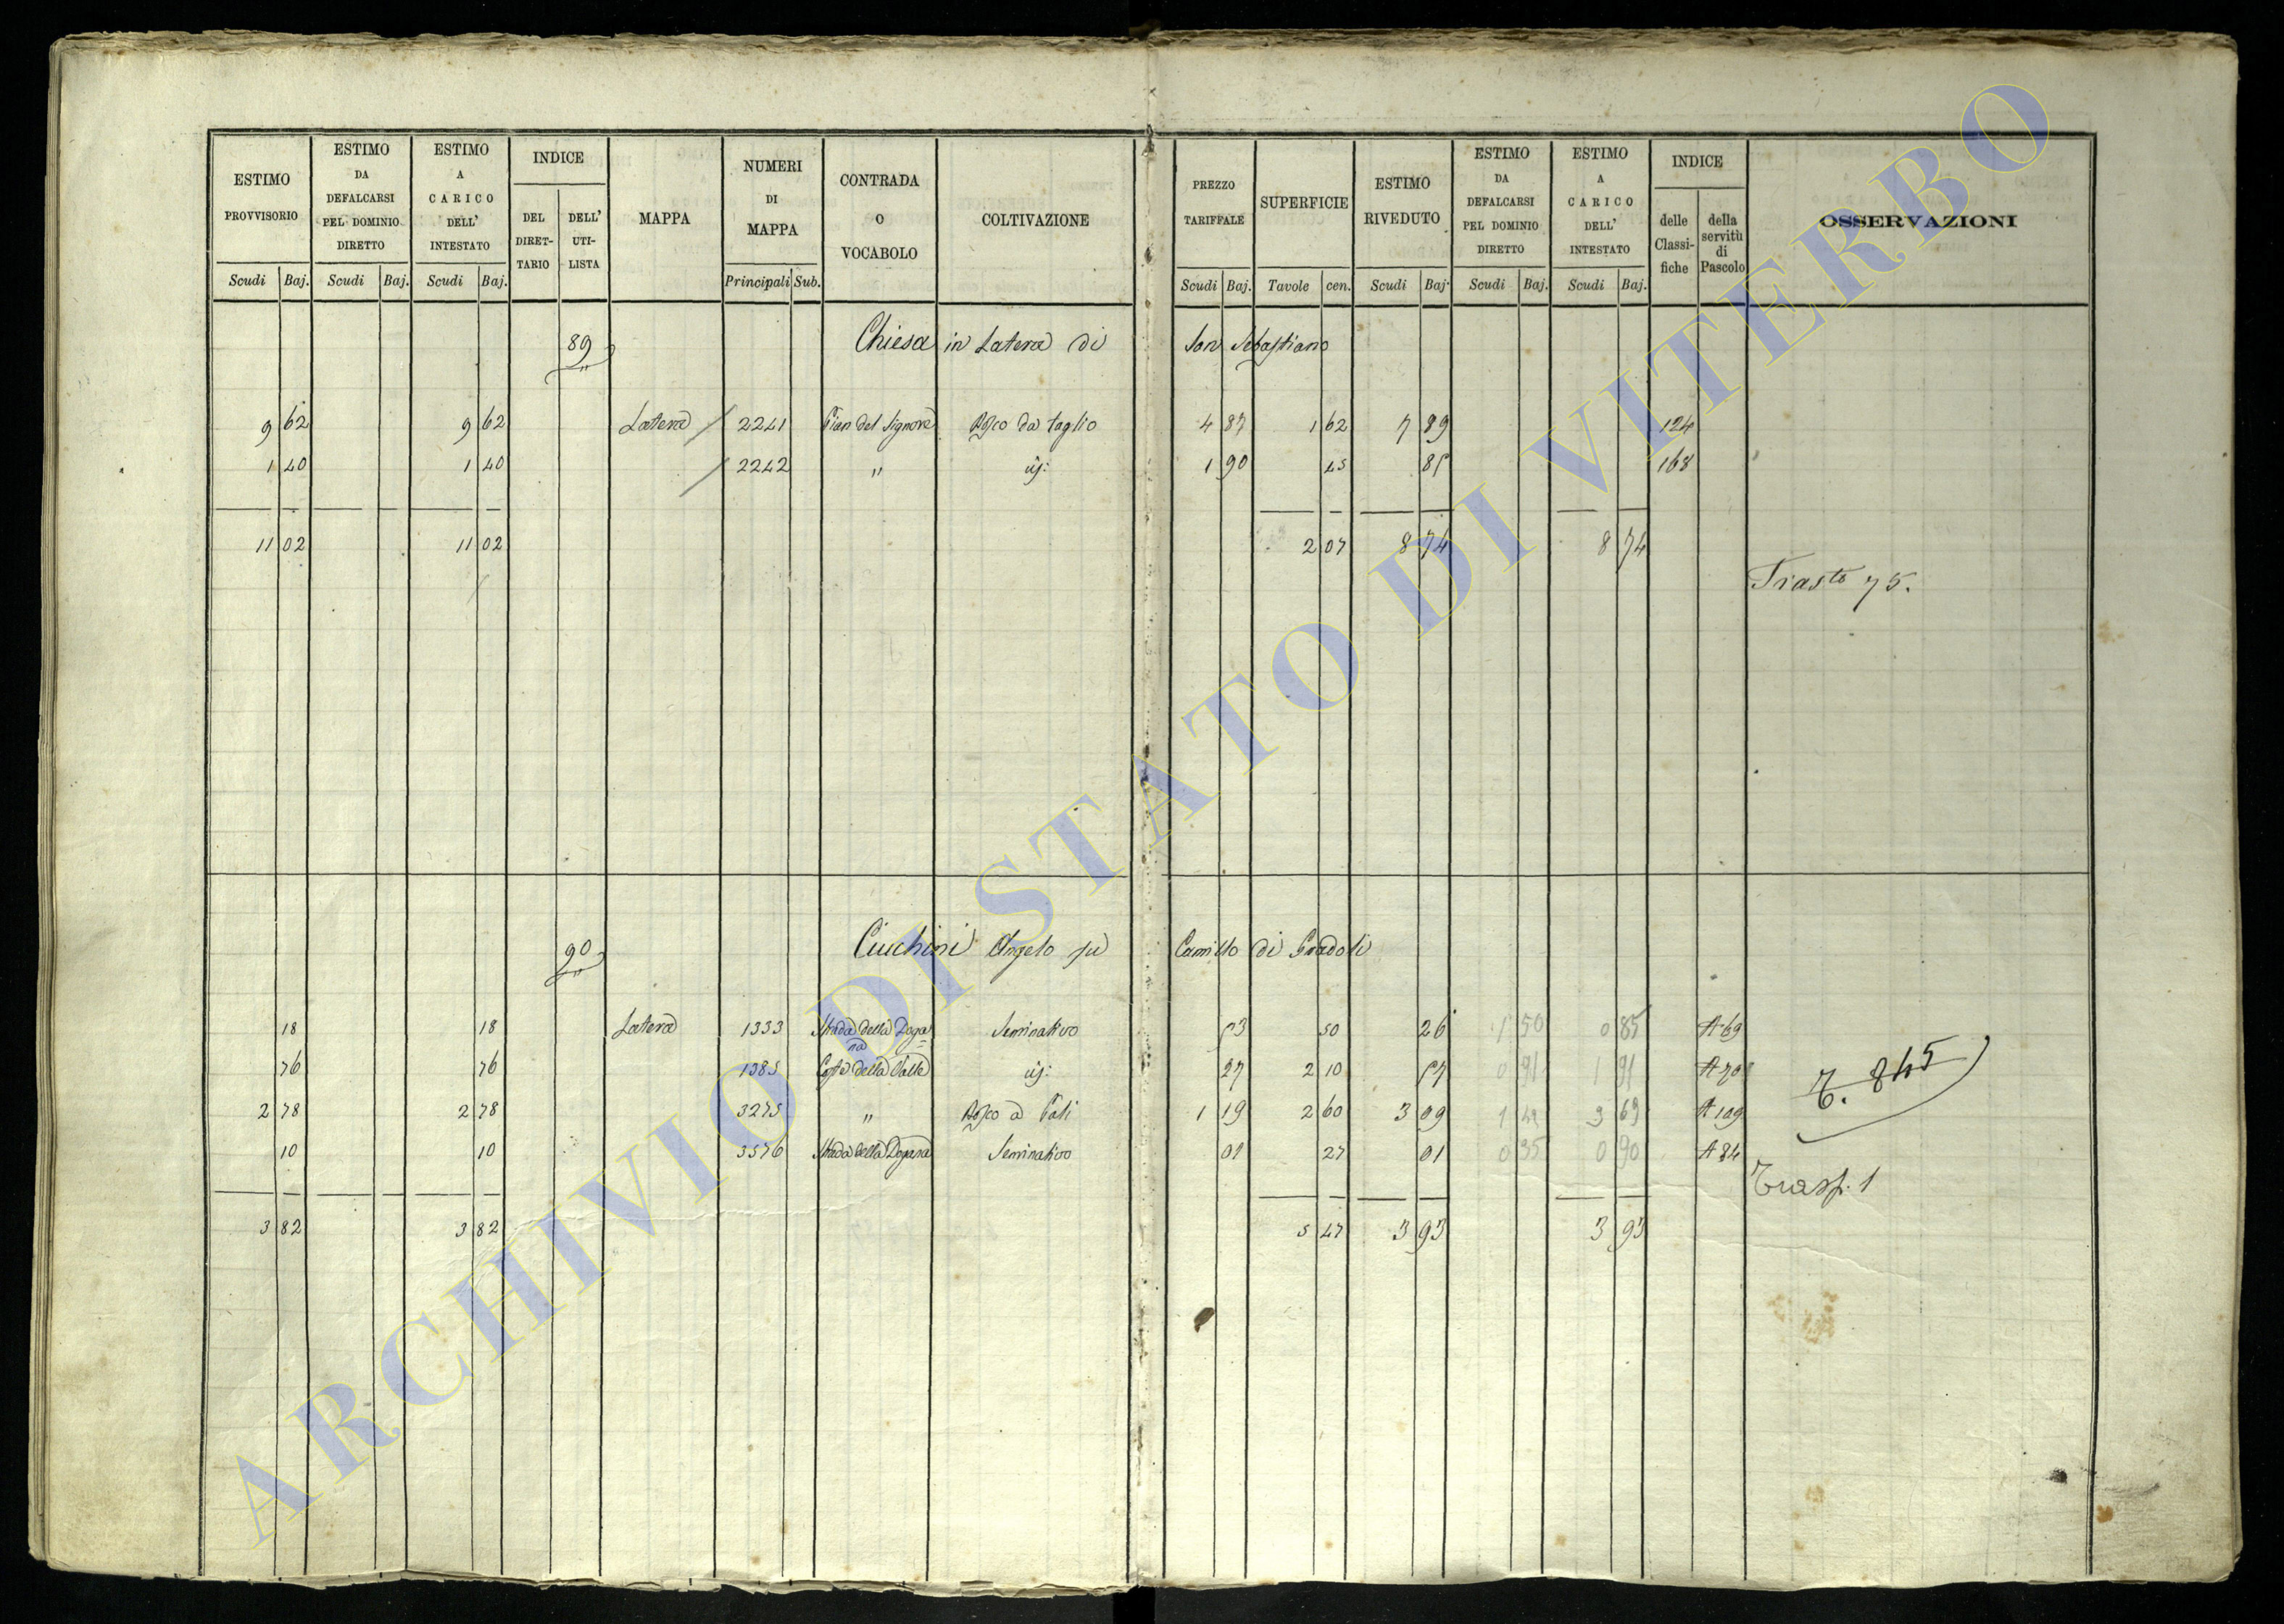 ESTIMO PROVVISORIO | ESTIMO DA DEFALCARSI PEL DOMINIO DIRETTO | ESTIMO A CARICO DELL' INTESTATO | INDICE | MAPPA | NUMERI DI MAPPA | CONTRADA O VOCABOLO | COLTIVAZIONE | PREZZO TARIFFALE | SUPERFICIE | ESTIMO RIVEDUTO | ESTIMO DA DEFALCARSI PEL DOMINIO DIRETTO | ESTIMO A CARICO DELL' INTESTATO | INDICE | OSSERVAZIONI
DEL DIRETTARIO | DELL' UTILISTA | delle Classifiche | della servitù di Pascolo
Scudi | Baj. | Scudi | Baj. | Scudi | Baj. | Principali | Sub. | Scudi | Baj. | Tavole | cen. | Scudi | Baj. | Scudi | Baj. | Scudi | Baj.
89 Chiesa in Latera di San Sebastiano
9 62 | 9 62 | Latera | 2241 | Pian del Signore | Bosco da taglio | 4 87 | 1 62 | 7 89 | 124
1 40 | 1 40 | 2242 | " | 1 90 | 45 | 85 | 168
11 02 | 11 02 | 2 07 | 8 74 | 8 74
75.
90 Ciuchini Angelo fu Camillo di Gradoli
18 | 18 | Latera | 1333 | Strada della Dogana | Seminativo | 53 | 50 | 26 | 1 50 | 0 85 | A 69
76 | 76 | 1385 | Costa della Valle | 27 | 2 10 | 57 | 0 91 | 1 91 | A 70
2 78 | 2 78 | 3275 | " | Bosco a Pali | 1 19 | 2 60 | 3 09 | 3 69 | A 109
10 | 10 | 3576 | Strada della Dogana | Seminativo | 27 | 01 | 0 35 | 0 90 | A 84
T. 845
Trasp. 1
3 82 | 3 82 | 5 47 | 3 93 | 3 93
ARCHIVIO DI STATO DI VITERBO